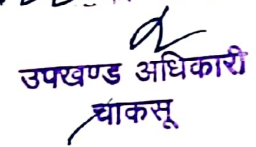 उपखण्ड अधिकारी
चाकसू